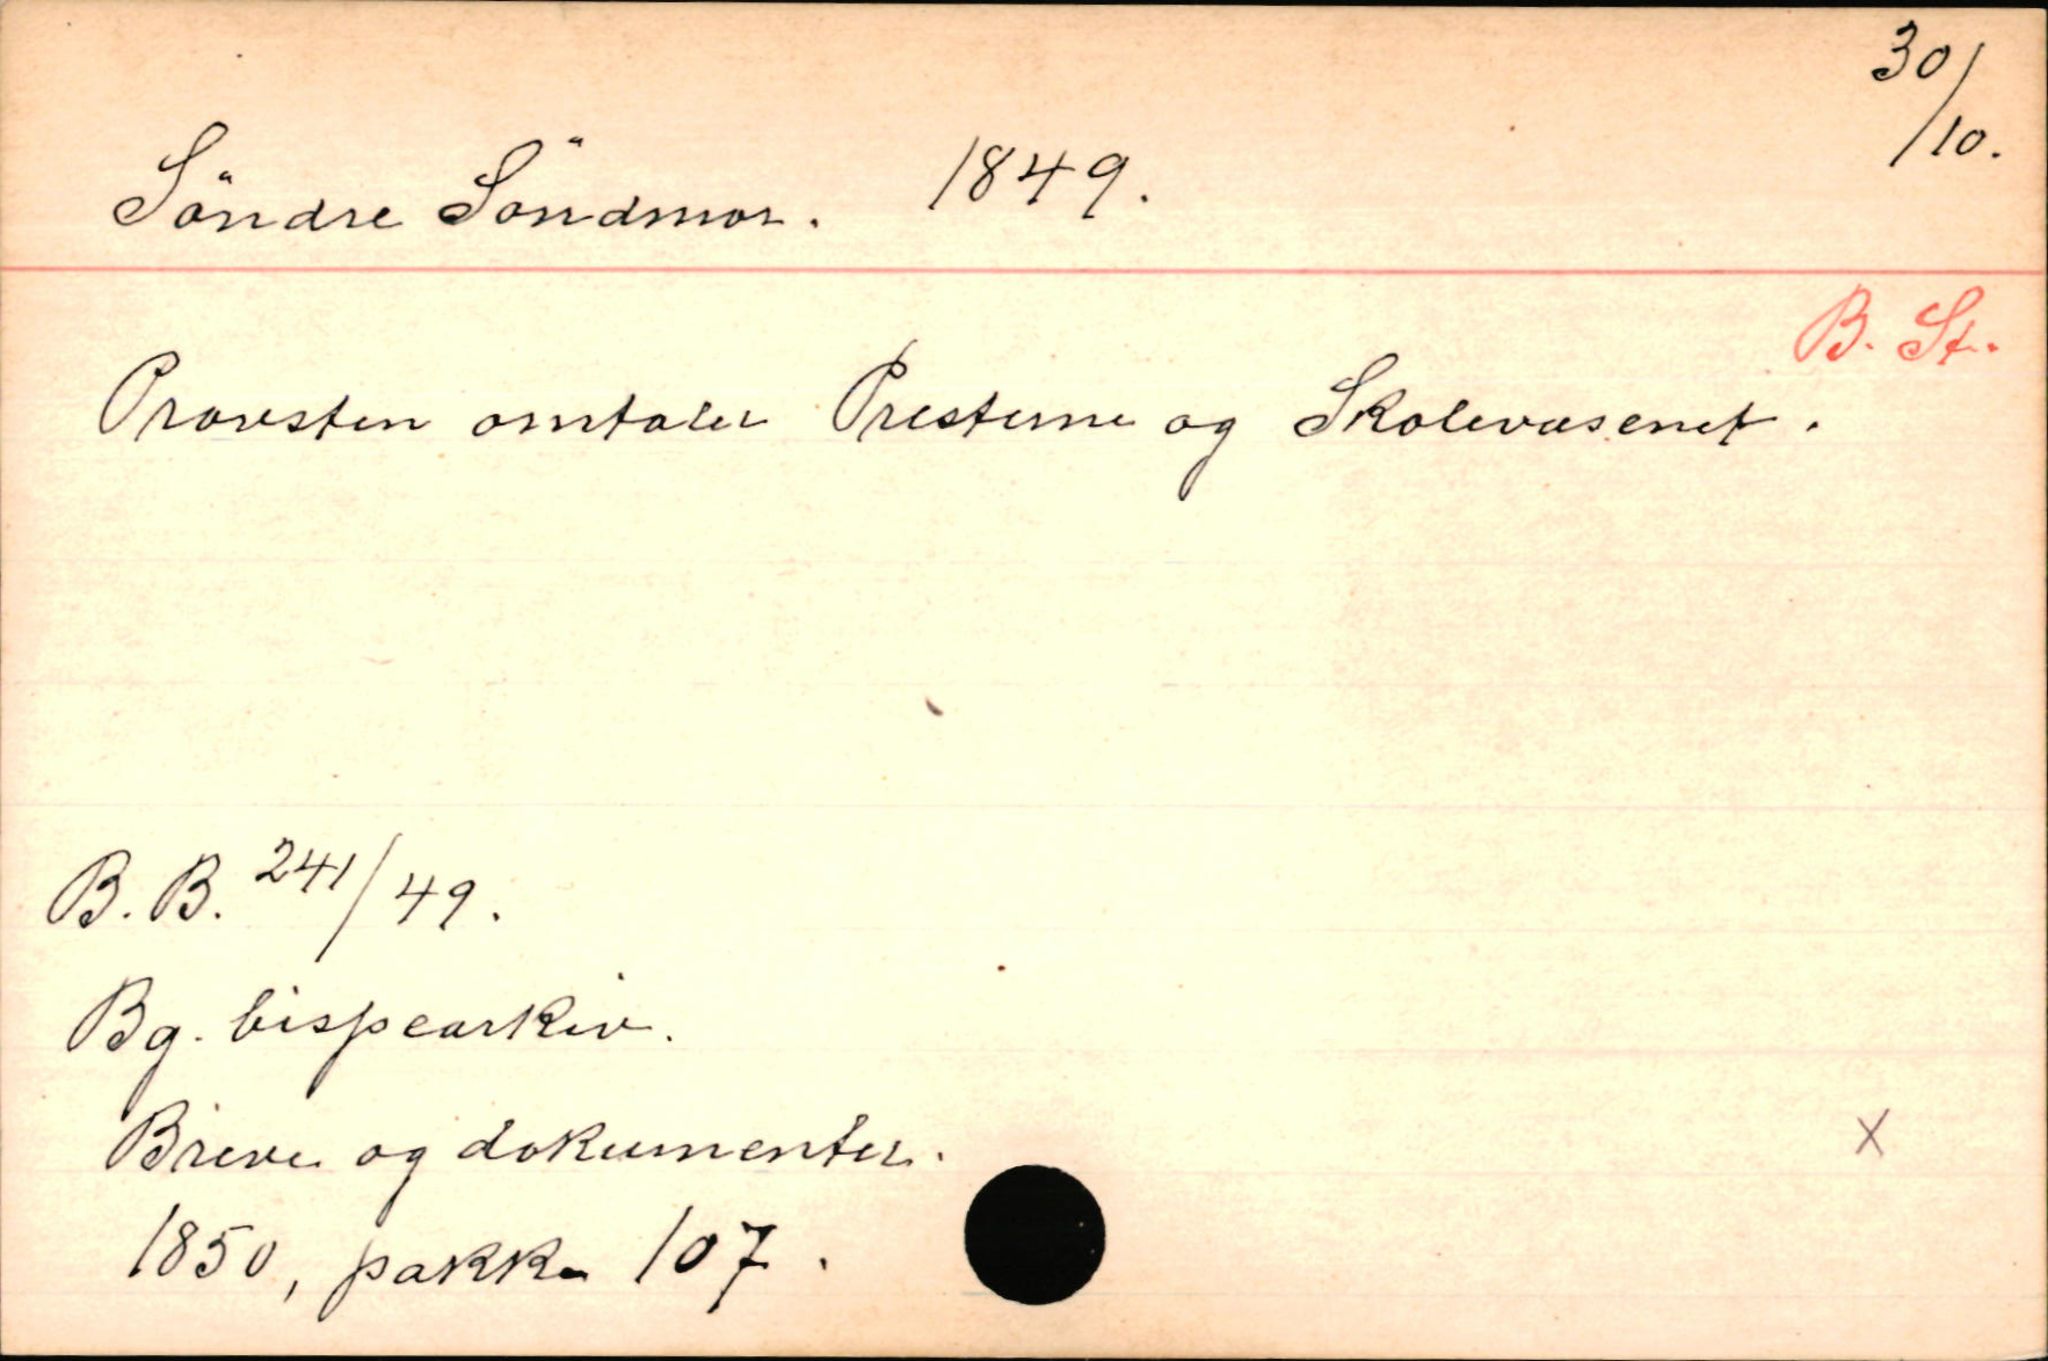 30/10.
Söndre Söndmør. 1849.
B. St.
Provsten omtaler Presterne og Skolevæsenet.
B. B. 241/49.
Bg. bispearkiv.
Breve og dokumenter.
1850, pakke 107.
X